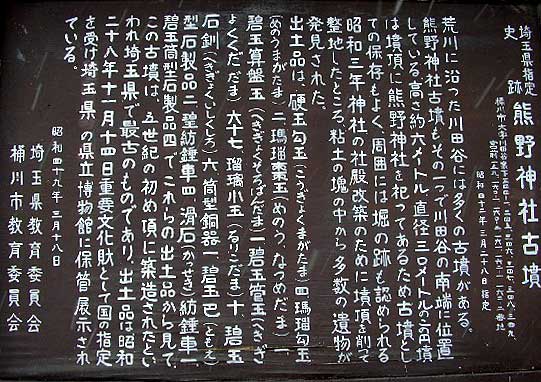 埼玉県指定
史跡 熊野神社古墳
昭和四十二年三月二十八日 指定
荒川に沿った川田谷には多くの古墳がある。
熊野神社古墳もその一つで川田谷の南端に位置
している高さ約六メートル、直径三〇メートルの円墳
は墳頂に熊野神社を祀ってあるため古墳とし
ての保存もよく、周囲には堀の跡も認められる
昭和三年神社の社殿改築のために墳頂を削って
整地したところ、粘土の塊の中から多数の遺物が
発見された。
出土品は、硬玉勾玉(こうぎょくまがたま)四、瑪瑙勾玉
(めのうまがたま)二、瑪瑙棗玉(めのうなつめだま)一
碧玉算盤玉(へきぎょくそろばんだま)一、碧玉管玉(へきぎ
ょくくだだま)六十七、瑠璃小玉(るりこだま)十、碧玉
石釧(へきぎょくいしくしろ)六、筒型銅器一、碧玉巴(ともえ)
型石製品二、碧紡錘車四、滑石(かっせき)紡錘車一、
碧玉筒型石製品四で、これらの出土品から見て、
この古墳は、五世紀の初め頃に築造されたとい
われ埼玉県で最古のものであり、出土品は昭和
二十八年十一月十四日重要文化財として国の指定
を受け埼玉県の県立博物館に保管・展示され
ている。
昭和四十九年三月十八日
埼玉県教育委員会
桶川市教育委員会